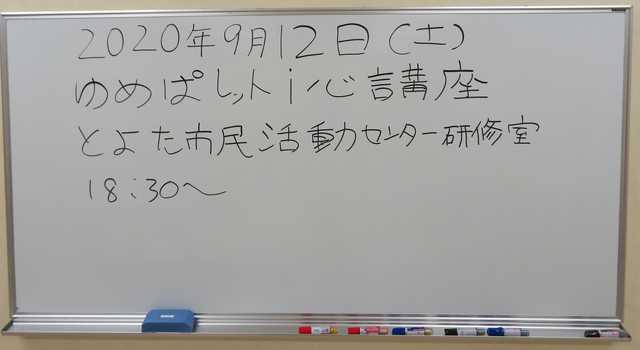 2020年9月12日(土)
ゆめぱレットi心言講座
とよた市民活動センター研修室
18:30〜